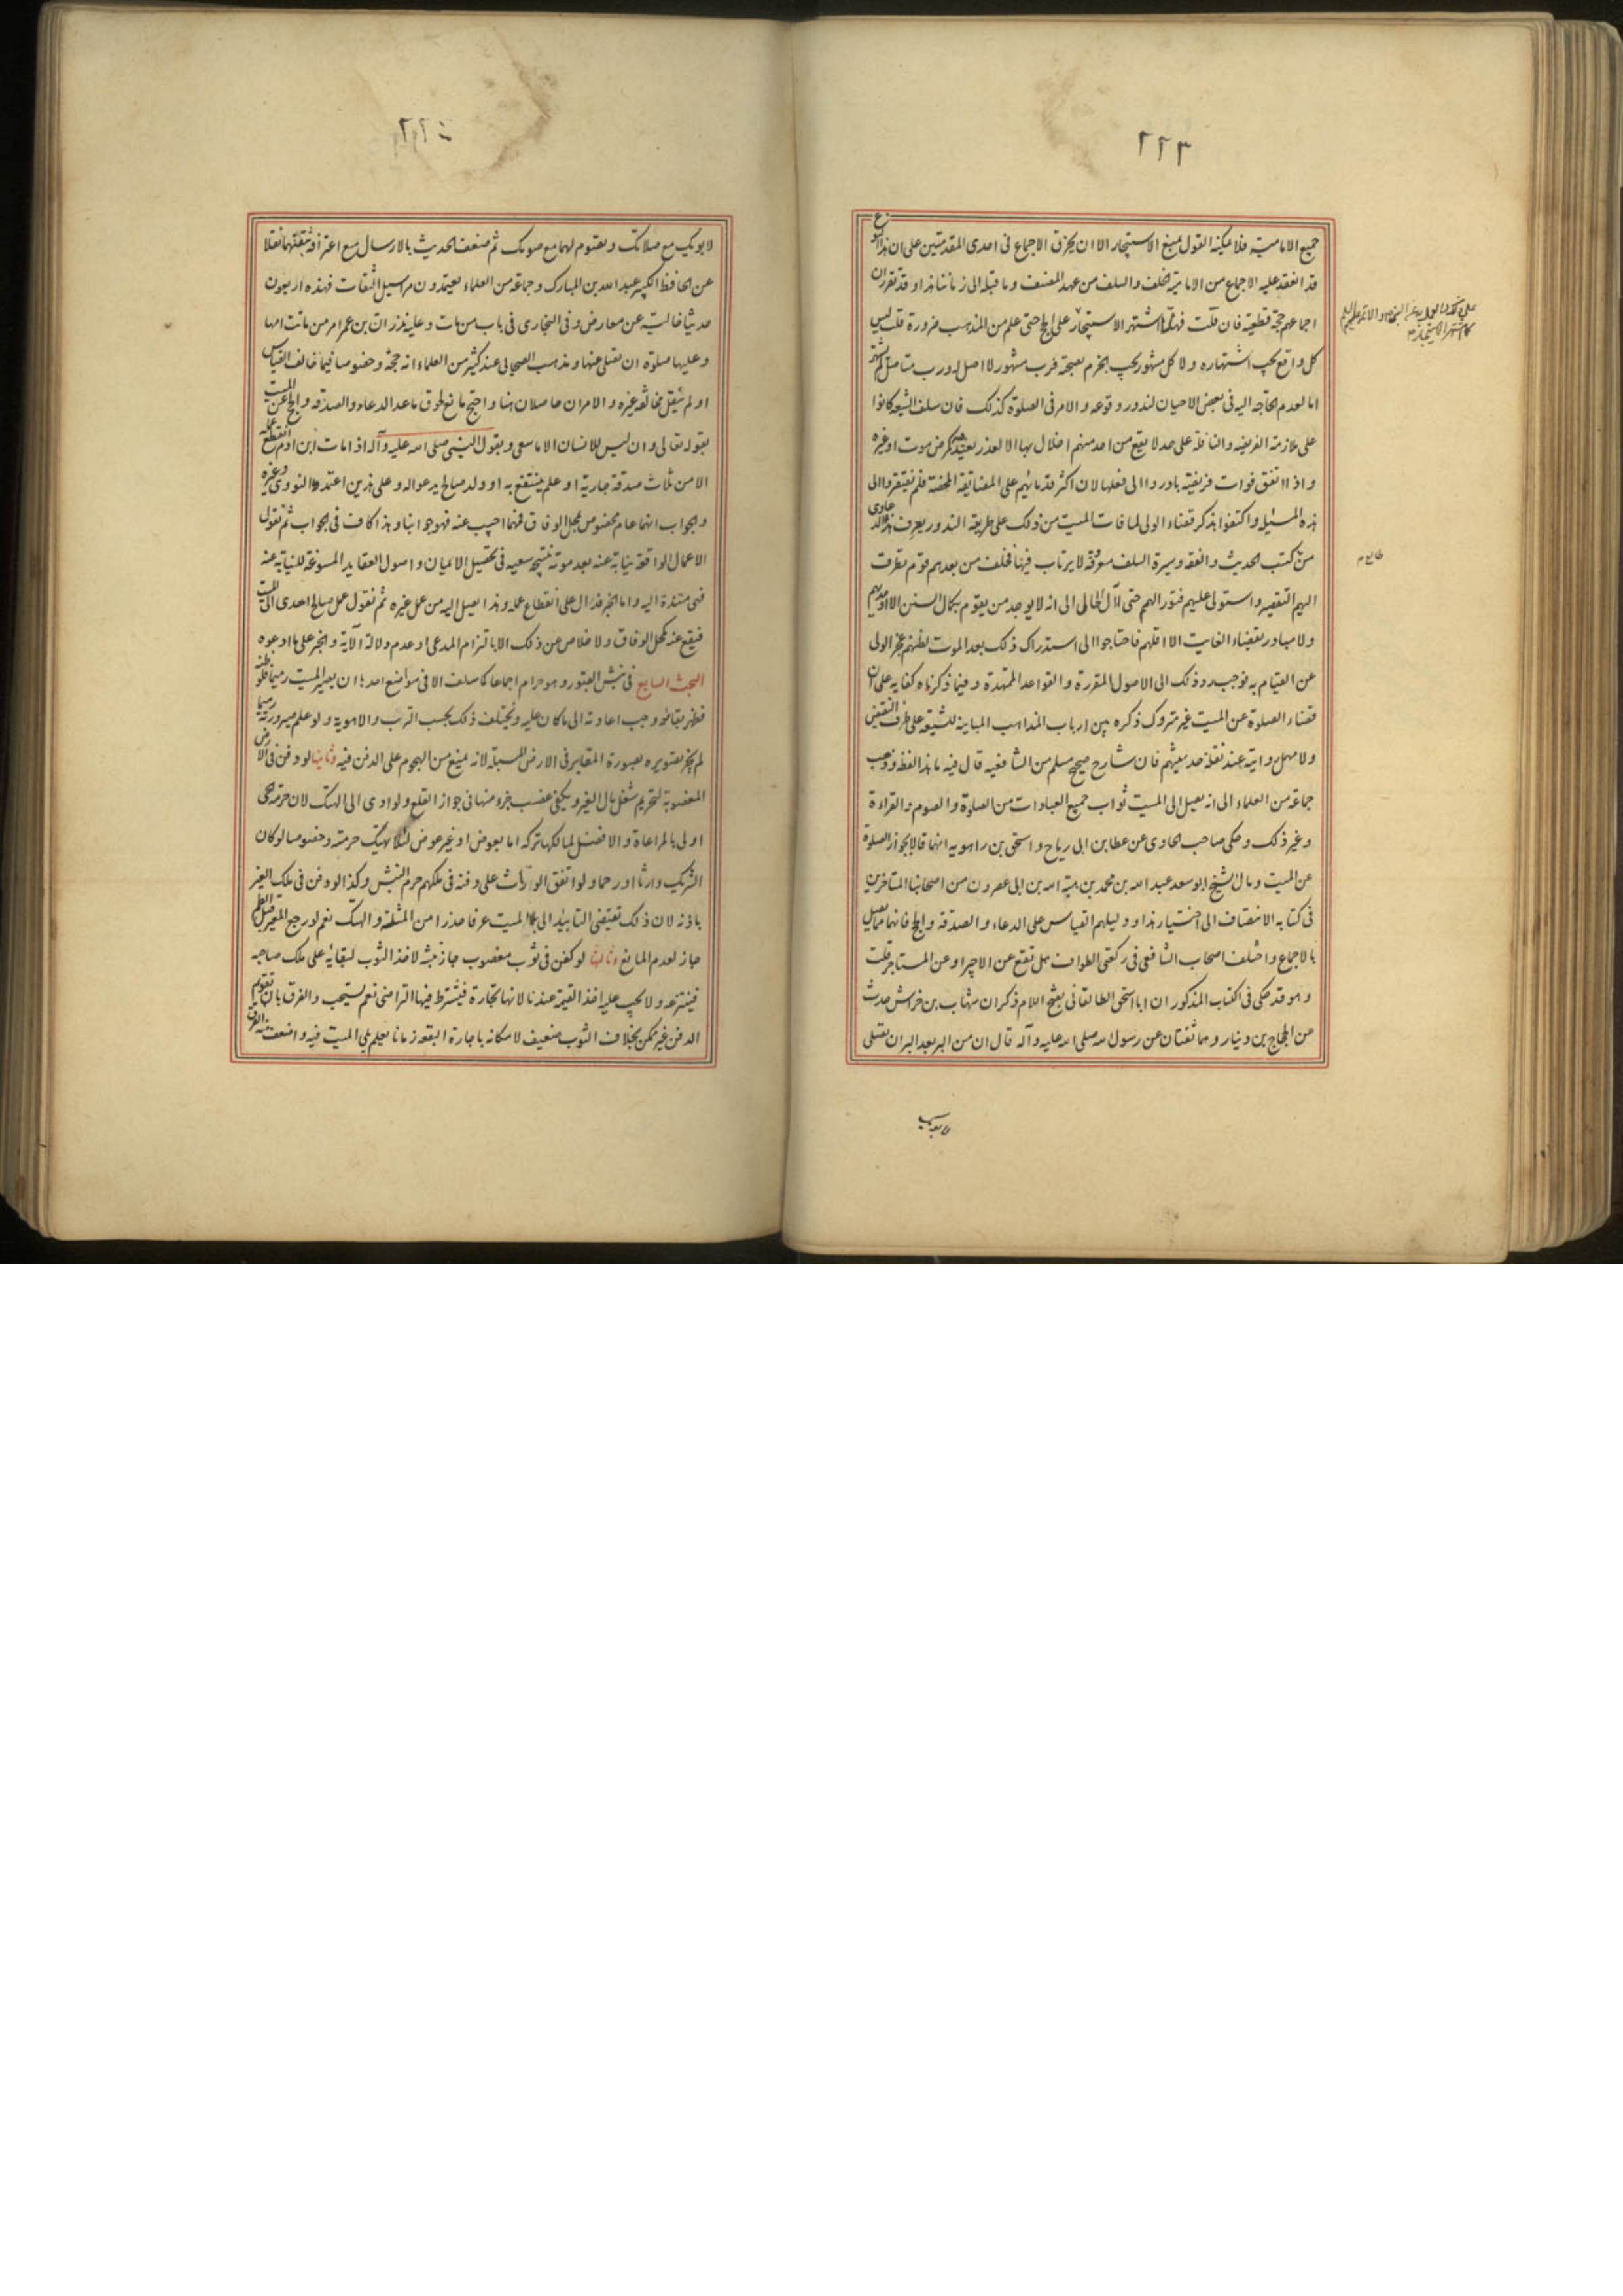 جميع الامامية فلا يمكنه القول بمنع الاستيجار الا ان يخرق الاجماع فى احدى المقدمتين على ان هذا النوع
قد انعقد عليه الاجماع من الامامية الخلف والسلف من عهد المصنف وما قبله الى زماننا هذا وقد تقرر ان
اجماعهم حجة قطعية فان قلت فهلا اشتهر الاستيجار على الحج حتى علم من المذهب ضرورة قلت ليس
كل واقع يجب اشتهاره ولا كل مشهور يجب الجزم بصحته فرب مشهور لا اصل له ورب متاصل لم يشتهر
اما لعدم الحاجه اليه فى بعض الاحيان لندور وقوعه والامر فى الصلوة كذلك فان سلف الشيعه كانوا
على ملازمة الفريضه والنافلة على حد لا يقع من احد منهم اخلال بها الا لعذر يعتد به كمرض موت او غيره
واذا اتفق فوات فريضة بادروا الى فعلها لان اكثر قدمائهم على المضايقة المحضة فلم يفتقروا الى
هذه المسئله واكتفوا بذكر قضاء الولى لما فات الميت من ذلك على طريقة الندور يعرف هذه الدعاوى
من كتب الحديث والفقه وسيرة السلف معرفة لا يرتاب فيها فخلف من بعدهم قوم تطرق
اليهم التقصير واستولى عليهم فتور الهمم حتى آل الحال الى انه لا يوجد من يقوم بكمال السنن الا اوحديهم
ولا مبادر بقضاء الفايت الا اقلهم فاحتاجوا الى استدراك ذلك بعد الموت لظنهم عجز الولى
عن القيام به فوجب رد ذلك الى الاصول المقررة والقواعد الممهدة وفيما ذكرناه كفايه على ان
قضاء الصلوة عن الميت غير متروك ذكره بين ارباب المذاهب المباينه للشيعه على طرف النقيض
ولا مهمل روايته عند نقلة حديثهم فان شارح صحيح مسلم من الشافعيه قال فيه ما هذا لفظه وذهب
جماعة من العلماء الى انه يصل الى الميت ثواب جميع العبادات من الصلوة والصوم والقراءة
وغير ذلك وحكى صاحب الحاوى عن عطا بن ابى رباح واسحق بن راهويه انهما قالا بجواز الصلوة
عن الميت ومال الشيخ ابو سعد عبد الله بن محمد بن هبة الله بن ابى عصرون من اصحابنا المتاخرين
فى كتابه الانتصاف الى اختيار هذا ودليلهم القياس على الدعاء والصدقة والحج فانها تصل
بالاجماع واختلف اصحاب الشافعى فى ركعتى الطواف هل تقع عن الاجير او عن المستاجر قلت
وهو قد حكى فى الكتاب المذكور ان ابا اسحق الطالقانى بفتح اللام ذكر ان شهاب بن خراش حدث
عن الحجاج بن دينار وهما ثقتان عن رسول الله صلى الله عليه وآله قال ان من البر بعد البر ان تصلى
لابويك
لابويك مع صلاتك وتصوم لهما مع صومك ثم ضعف الحديث بالارسال مع اعترافه بثقتهما نقلا
عن الحافظ الكبير عبد الله بن المبارك وجماعة من العلماء يعتمدون مراسيل الثقات فهذه اربعون
حديثا خالية عن معارض وفى البخارى فى باب من مات وعليه نذر ان ابن عمر امر من ماتت امها
وعليها صلوة ان تصلى عنها ومذهب الصحابى عند كثير من العلماء انه حجة وخصوصا فيما خالف القياس
او لم ينقل مخالفة غيره والامران حاصلان هنا واحتج مانع لحوق ماعدا الدعاء والصدقه والحج عن الميت
بقوله تعالى وان ليس للانسان الا ما سعى وبقول النبى صلى الله عليه وآله اذا مات ابن ادم انقطع عمله
الا من ثلاث صدقة جارية او علم ينتفع به او ولد صالح يدعو له وعلى هذين اعتمد النووى وغيره
والجواب انهما عام مخصوص بمحل الوفاق فمهما اجيب عنه فهو جوابنا وهذا كاف فى الجواب ثم نقول
الاعمال الواقعة نيابة عنه بعد موته نتيجة سعيه فى تحصيل الايمان واصول العقايد المسوغة للنيابة عنه
فهى مستندة اليه واما الخبر فدال على انقطاع عمله وهذا يصل اليه من عمل غيره ثم نقول عمل صالح اهدى الى الميت
فيقع عنه كمحل الوفاق ولا خلاص من ذلك الا بالتزام المدعى او عدم دلالة الآية والخبر على ما ادعوه
البحث السابع فى نبش القبور وهو حرام اجماعا كما سلف الا فى مواضع احدها ان يصير الميت رميما فلو ظنه
فظهر بقاؤه وجب اعادته الى ما كان عليه ويختلف ذلك بحسب الترب والاهوية ولو علم صيرورته رميما
لم يجز تصويره بصورة المقابر فى الارض المسبلة لانه يمنع من الهجوم على الدفن فيه وثانيها لو دفن فى الارض
المغصوبة لتحريم شغل مال الغير ويكفى غصب جزء منها فى جواز القلع ولو ادى الى الهتك لان حرمة الحى
اولى بالمراعاة والافضل لمالكها تركه اما بعوض او غير عوض لئلا يهتك حرمته وخصوصا لو كان
الشريك وارثا او رحما ولو اتفق الوراث على دفنه فى ملكهم حرم النبش وكذا لو دفن فى ملك الغير
باذنه لان ذلك يقتضى التابيد الى بلى الميت عرفا حذرا من المثلة والهتك نعم لو رجع المعير قبل الطم
جاز لعدم المانع وثالثها لو كفن فى ثوب مغصوب جاز نبشه لاخذ الثوب لبقايه على ملك صاحبه
فينتزعه ولا يجب عليه اخذ القيمة عندنا لانها تجارة فيشترط فيها التراضى نعم يستحب والفرق بان تقويم
الدفن غير ممكن بخلاف الثوب ضعيف لامكانه باجارة البقعه زمانا يعلم بلى الميت فيه واضعف منه الفرق